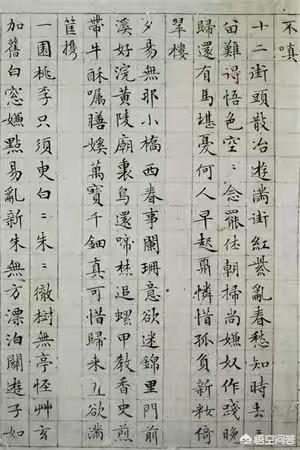 不嗔
十二街頭散冶遊滿街紅紫亂春愁知時去〻
留難得悟色空〻念罷休朝掃尚嫌奴作踐晚
歸還有馬堪憂何人早起憐惜孤負新粧倚
翠樓
夕易無那小橋西春事闌珊意欲迷錦里門前
溪好浣黃陵廟裏鳥還啼焚追螺甲教香史煎
帶牛酥囑膳媛萬寶千鈿真可惜歸來直欲滿
筐攜
一園桃李只須臾白〻朱〻徹樹無亭怪艸玄
加舊白窓嫌點易亂新朱無方漂泊關遊子如
悟空问答